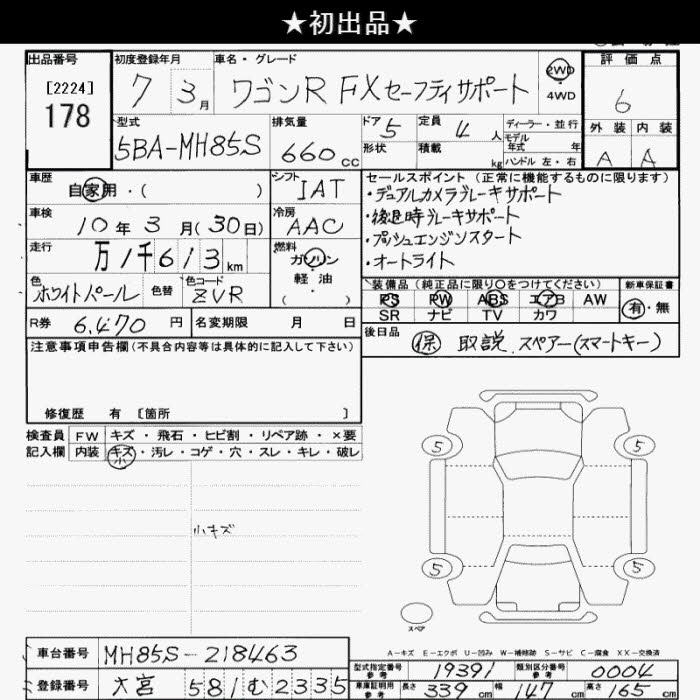 ★初出品★
出品番号 初度登録年月 車名・グレード 評価点
[2224]
178
7 3月 ワゴンR FXセーフティサポート 2WD 4WD 6
型式 排気量 ドア 5 定員 4人 ディーラー・並行 外装 内装
5BA-MH85S 660cc 形状 積載 kg モデル年式 年 ハンドル 左・右 A A
車歴 自家用・( ) シフト IAT
車検 10年3月(30日) 冷房 AAC
走行 万1千613km 燃料 ガソリン・軽油・( )
色 ホワイトパール 色替 色コード ZVR
R券 6,470円 名変期限 月 日
セールスポイント(正常に機能するものに限ります)
・デュアルカメラブレーキサポート
・後退時ブレーキサポート
・プッシュエンジンスタート
・オートライト
装備品(純正品に限り〇をつけてください) 新車保証書
PS PW ABS エアB AW 有・無
SR ナビ TV カワ
後日品 保 取説 スペアー(スマートキー)
注意事項申告欄(不具合内容等は具体的に記入して下さい)
修復歴 有 [箇所 ]
検査員 FW キズ・飛石・ヒビ割・リペア跡・×要
記入欄 内装 キズ・汚レ・コゲ・穴・スレ・キレ・破レ
小
小キズ
5 5
5 5
スペア
A-キズ E-エクボ U-凹み W-補修跡 S-サビ C-腐食 XX-交換済
車台番号 MH85S-218463
登録番号 大宮 581 む 2335
型式指定番号 参考 19391 類別区分番号 参考 0004
車庫証明用 参考 長さ 339cm 幅 147cm 高さ 165cm